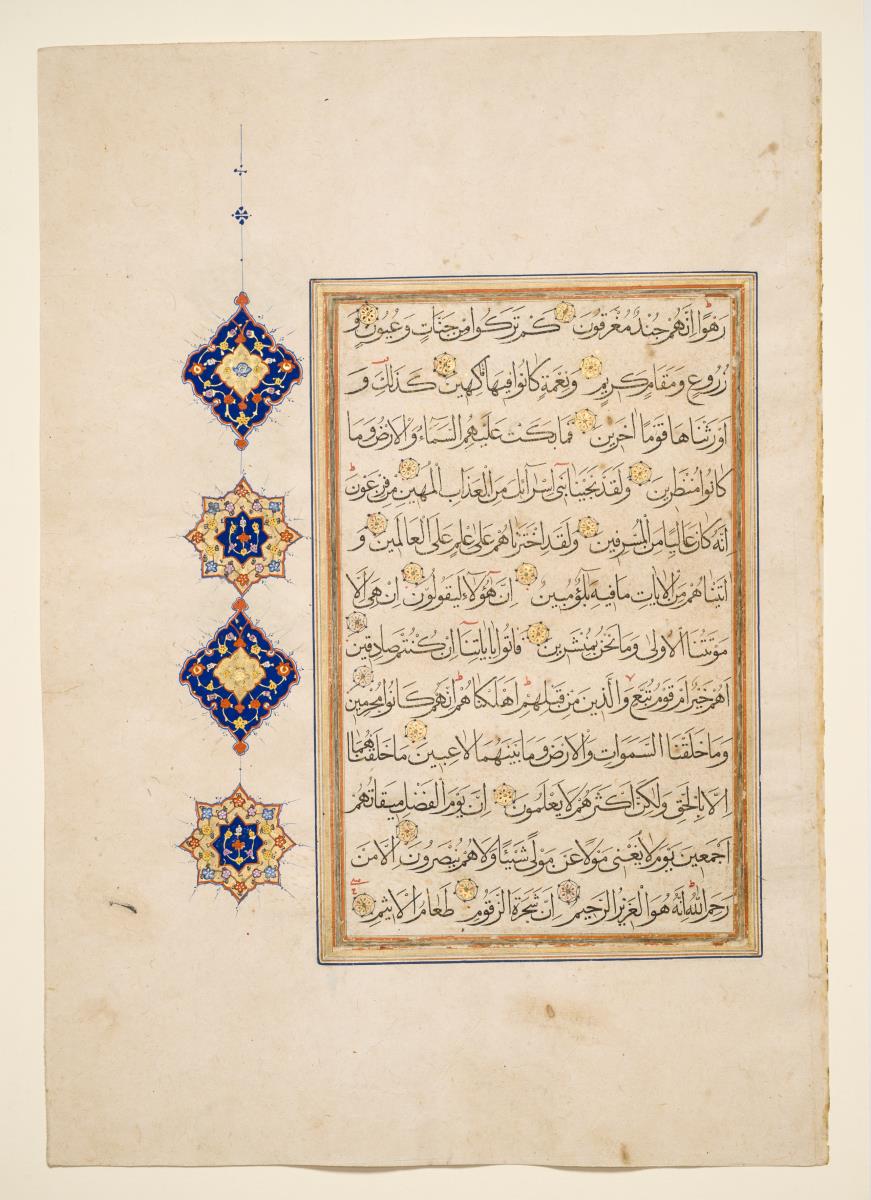 رَهْوًا اِنَّهُمْ جُنْدٌ مُغْرَقُونَ كَمْ تَرَكُوا مِنْ جَنَّاتٍ وَعُيُونٍ وَ
زُرُوعٍ وَمَقَامٍ كَرِيمٍ وَنَعْمَةٍ كَانُوا فِيهَا فَاكِهِينَ كَذٰلِكَ وَ
اَوْرَثْنَاهَا قَوْمًا اٰخَرِينَ فَمَا بَكَتْ عَلَيْهِمُ السَّمَاءُ وَالْاَرْضُ وَمَا
كَانُوا مُنْظَرِينَ وَلَقَدْ نَجَّيْنَا بَنِي اِسْرَائِلَ مِنَ الْعَذَابِ الْمُهِينِ مِنْ فِرْعَوْنَ
اِنَّهُ كَانَ عَالِيًا مِنَ الْمُسْرِفِينَ وَلَقَدِ اخْتَرْنَاهُمْ عَلَى عِلْمٍ عَلَى الْعَالَمِينَ وَ
اٰتَيْنَاهُمْ مِنَ الْاٰيَاتِ مَا فِيهِ بَلٰؤٌ مُبِينٌ اِنَّ هٰؤُلَاءِ لَيَقُولُونَ اِنْ هِيَ اِلَّا
مَوْتَتُنَا الْاُولَى وَمَا نَحْنُ بِمُنْشَرِينَ فَاْتُوا بِاٰبَائِنَا اِنْ كُنْتُمْ صَادِقِينَ
اَهُمْ خَيْرٌ اَمْ قَوْمُ تُبَّعٍ وَالَّذِينَ مِنْ قَبْلِهِمْ اَهْلَكْنَاهُمْ اِنَّهُمْ كَانُوا مُجْرِمِينَ
وَمَا خَلَقْنَا السَّمٰوَاتِ وَالْاَرْضَ وَمَا بَيْنَهُمَا لَاعِبِينَ مَا خَلَقْنَاهُمَا
اِلَّا بِالْحَقِّ وَلٰكِنَّ اَكْثَرَهُمْ لَا يَعْلَمُونَ اِنَّ يَوْمَ الْفَصْلِ مِيقَاتُهُمْ
اَجْمَعِينَ يَوْمَ لَا يُغْنِي مَوْلًا عَنْ مَوْلًى شَيْئًا وَلَا هُمْ يُنْصَرُونَ اِلَّا مَنْ
رَحِمَ اللّٰهُ اِنَّهُ هُوَ الْعَزِيزُ الرَّحِيمُ اِنَّ شَجَرَةَ الزَّقُّومِ طَعَامُ الْاَثِيمِ